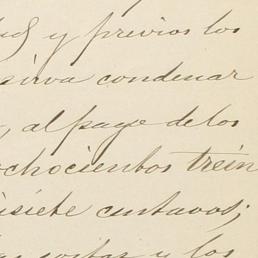 y previos los
sirva condenar
, al pago de los
ochocientos trein
isiete centavos;
costas y los